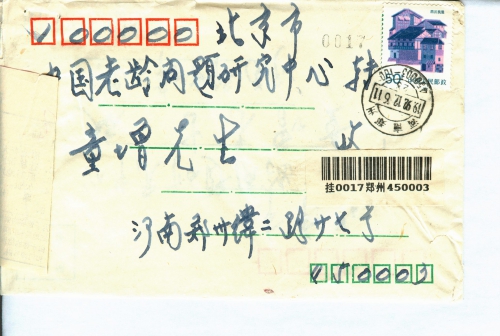 100000 北京市
0017
中国老龄问题研究中心 转
童增先生 收
50
民邮政
河南 郑州
挂0017郑州450003
河南郑州纬二路廿七号
450003